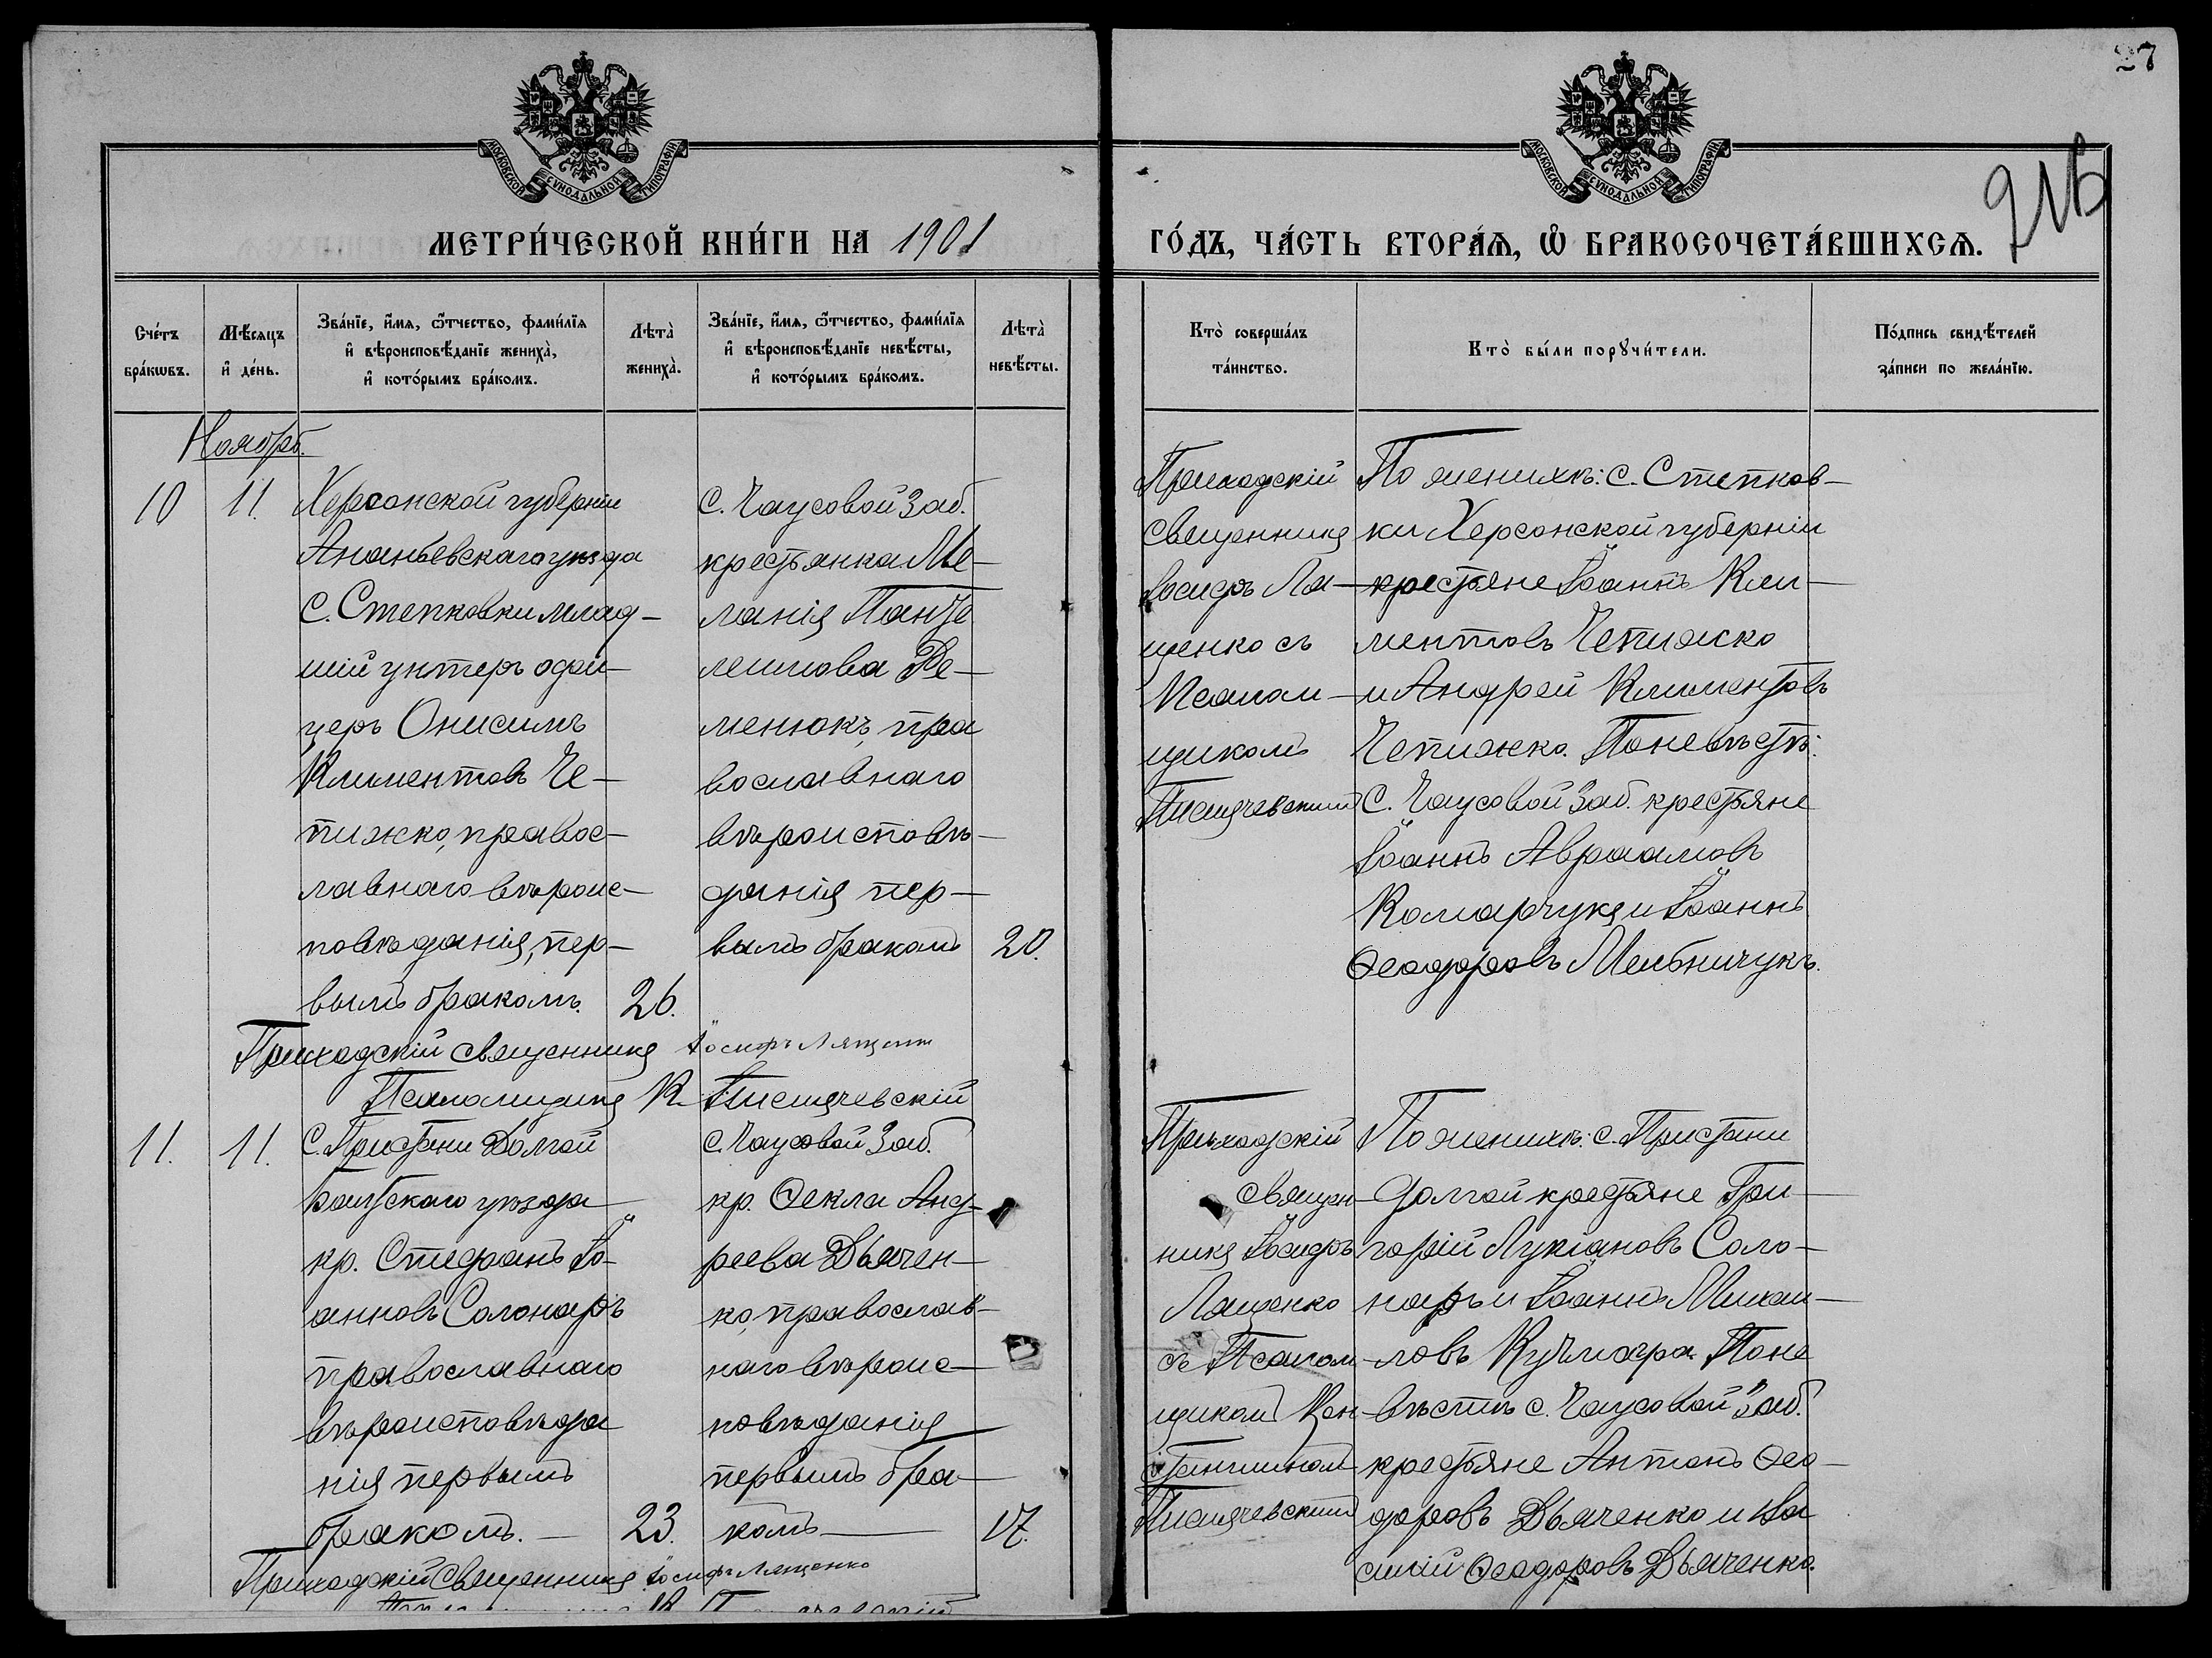 27
216
МОСКОВСКОЙ СѴНОДАЛЬНОЙ ТИПОГРАФІИ
МОСКОВСКОЙ СѴНОДАЛЬНОЙ ТИПОГРАФІИ
МЕТРИ́ЧЕСКОЙ КНИ́ГИ НА 1901
ГО́ДЪ, ЧА́СТЬ ВТОРА́Ѧ, Ѡ҆ БРАКОСОЧЕТА́ВШИХСѦ.
Сче́тъ бра́кѡвъ.
Мѣ́сяцъ и҆ де́нь.
Зва́нїе, и҆́мѧ, ѻ҆́тчество, фами́лїѧ
и҆ вѣроисповѣ́данїе жениха̀,
и҆ кото́рымъ бра́комъ.
Лѣта̀ жениха̀.
Зва́нїе, и҆́мѧ, ѻ҆́тчество, фами́лїѧ
и҆ вѣроисповѣ́данїе невѣ́сты,
и҆ кото́рымъ бра́комъ.
Лѣта̀ невѣ́сты.
Кто̀ соверша́лъ та́инство.
Кто̀ бы́ли порꙋчи́тели.
По́дпись свидѣ́телей за́писи по жела́нїю.
Ноябрь.
10
11.
Херсонской губерніи
Ананьевскаго уѣзда
С. Степковки млад-
шій унтеръ офи-
церъ Онисимъ
Климентовъ Че-
пижко, правос-
лавнаго вѣроис-
повѣданія, пер-
вымъ бракомъ.
26.
С. Чаусовой Заб.
крестьянка Ме-
ланія Панте
леимова Де-
менюкъ, пра
вославнаго
вѣроисповѣ-
данія пер-
вымъ бракомъ
20.
Приходскій
Священникъ
Іосифъ Ля-
щенко съ
Псалом-
щикомъ
Писщчевскимъ
По женихѣ: с. Степков-
ки Херсонской губерніи
крестьяне Іоаннъ Кли-
ментовъ Чепижко
и Андрей Климентовъ
Чепижко. По невѣстѣ:
С. Чаусовой Заб. крестьяне
Іоаннъ Авраамовъ
Комарчукъ и Іоаннъ
Ѳеодоровъ Мельничукъ.
Приходскій священникъ Іосифъ Лященко
Псаломщикъ К.
11.
11.
С. Пристани Долгой
Балтскаго уѣзда
кр. Стефанъ Іо-
анновъ Солонаръ
православнаго
вѣроисповѣда
нія первымъ
бракомъ.
23.
С. Чаусовой Заб.
кр. Ѳекла Анд-
реева Дьячен-
ко, православ-
наго вѣроис-
повѣданія
первымъ бра-
комъ
17.
Приходскій
священ-
никъ Іосифъ
Лященко
съ Псалом-
щикомъ Кон-
стантиномъ
По женихѣ: с. Пристани
Долгой крестьяне Гри-
горій Лукіановъ Соло-
наръ и Іоаннъ Михаи-
ловъ Кучмаръ. По не
вѣстѣ с. Чаусовой Заб.
крестьяне Антонъ Ѳео-
доровъ Дьяченко и Ва
силій Ѳеодоровъ Дьяченко.
Приходскій Священникъ Іосифъ Лященко